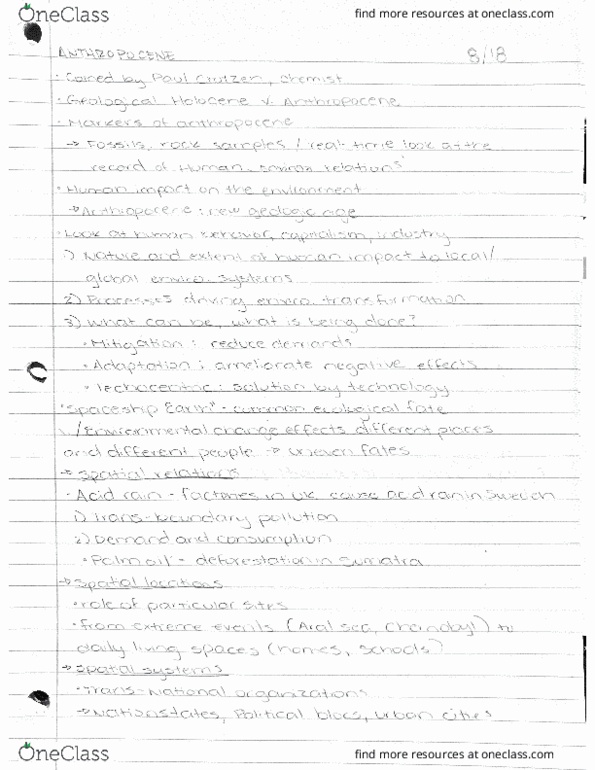 OneClass
find more resources at oneclass.com
ANTHROPOCENE 8/18
· Coined by Paul Crutzen, Chemist
· Geological Holocene v. Anthropocene
· Markers of anthropocene
→ Fossils, rock samples / real-time look at the
record of Human environ relations
· Human impact on the environment
→ Anthropocene: new geologic age
· Look at human behavior, capitalism, industry
1) Nature and extent of human impact to local/
global enviro. systems
2) Processes driving enviro. transformation
3) What can be, what is being done?
· Mitigation: reduce demands
· Adaptation: ameliorate negative effects
· Technocentric: solution by technology
"Spaceship Earth" - common ecological fate
/Environmental change effects different places
and different people → uneven fates
→ Spatial relations
· Acid rain - factories in UK cause acid rain in Sweden
1) Trans-boundary pollution
2) Demand and consumption
· Palm oil - deforestation in Sumatra
→ Spatial locations
· role of particular sites
· From extreme events (Aral sea, Chernobyl) to
daily living spaces (homes, schools)
→ Spatial systems
· Trans-National organizations
→ Nationstates, Political blocs, urban cities
OneClass
find more resources at oneclass.com